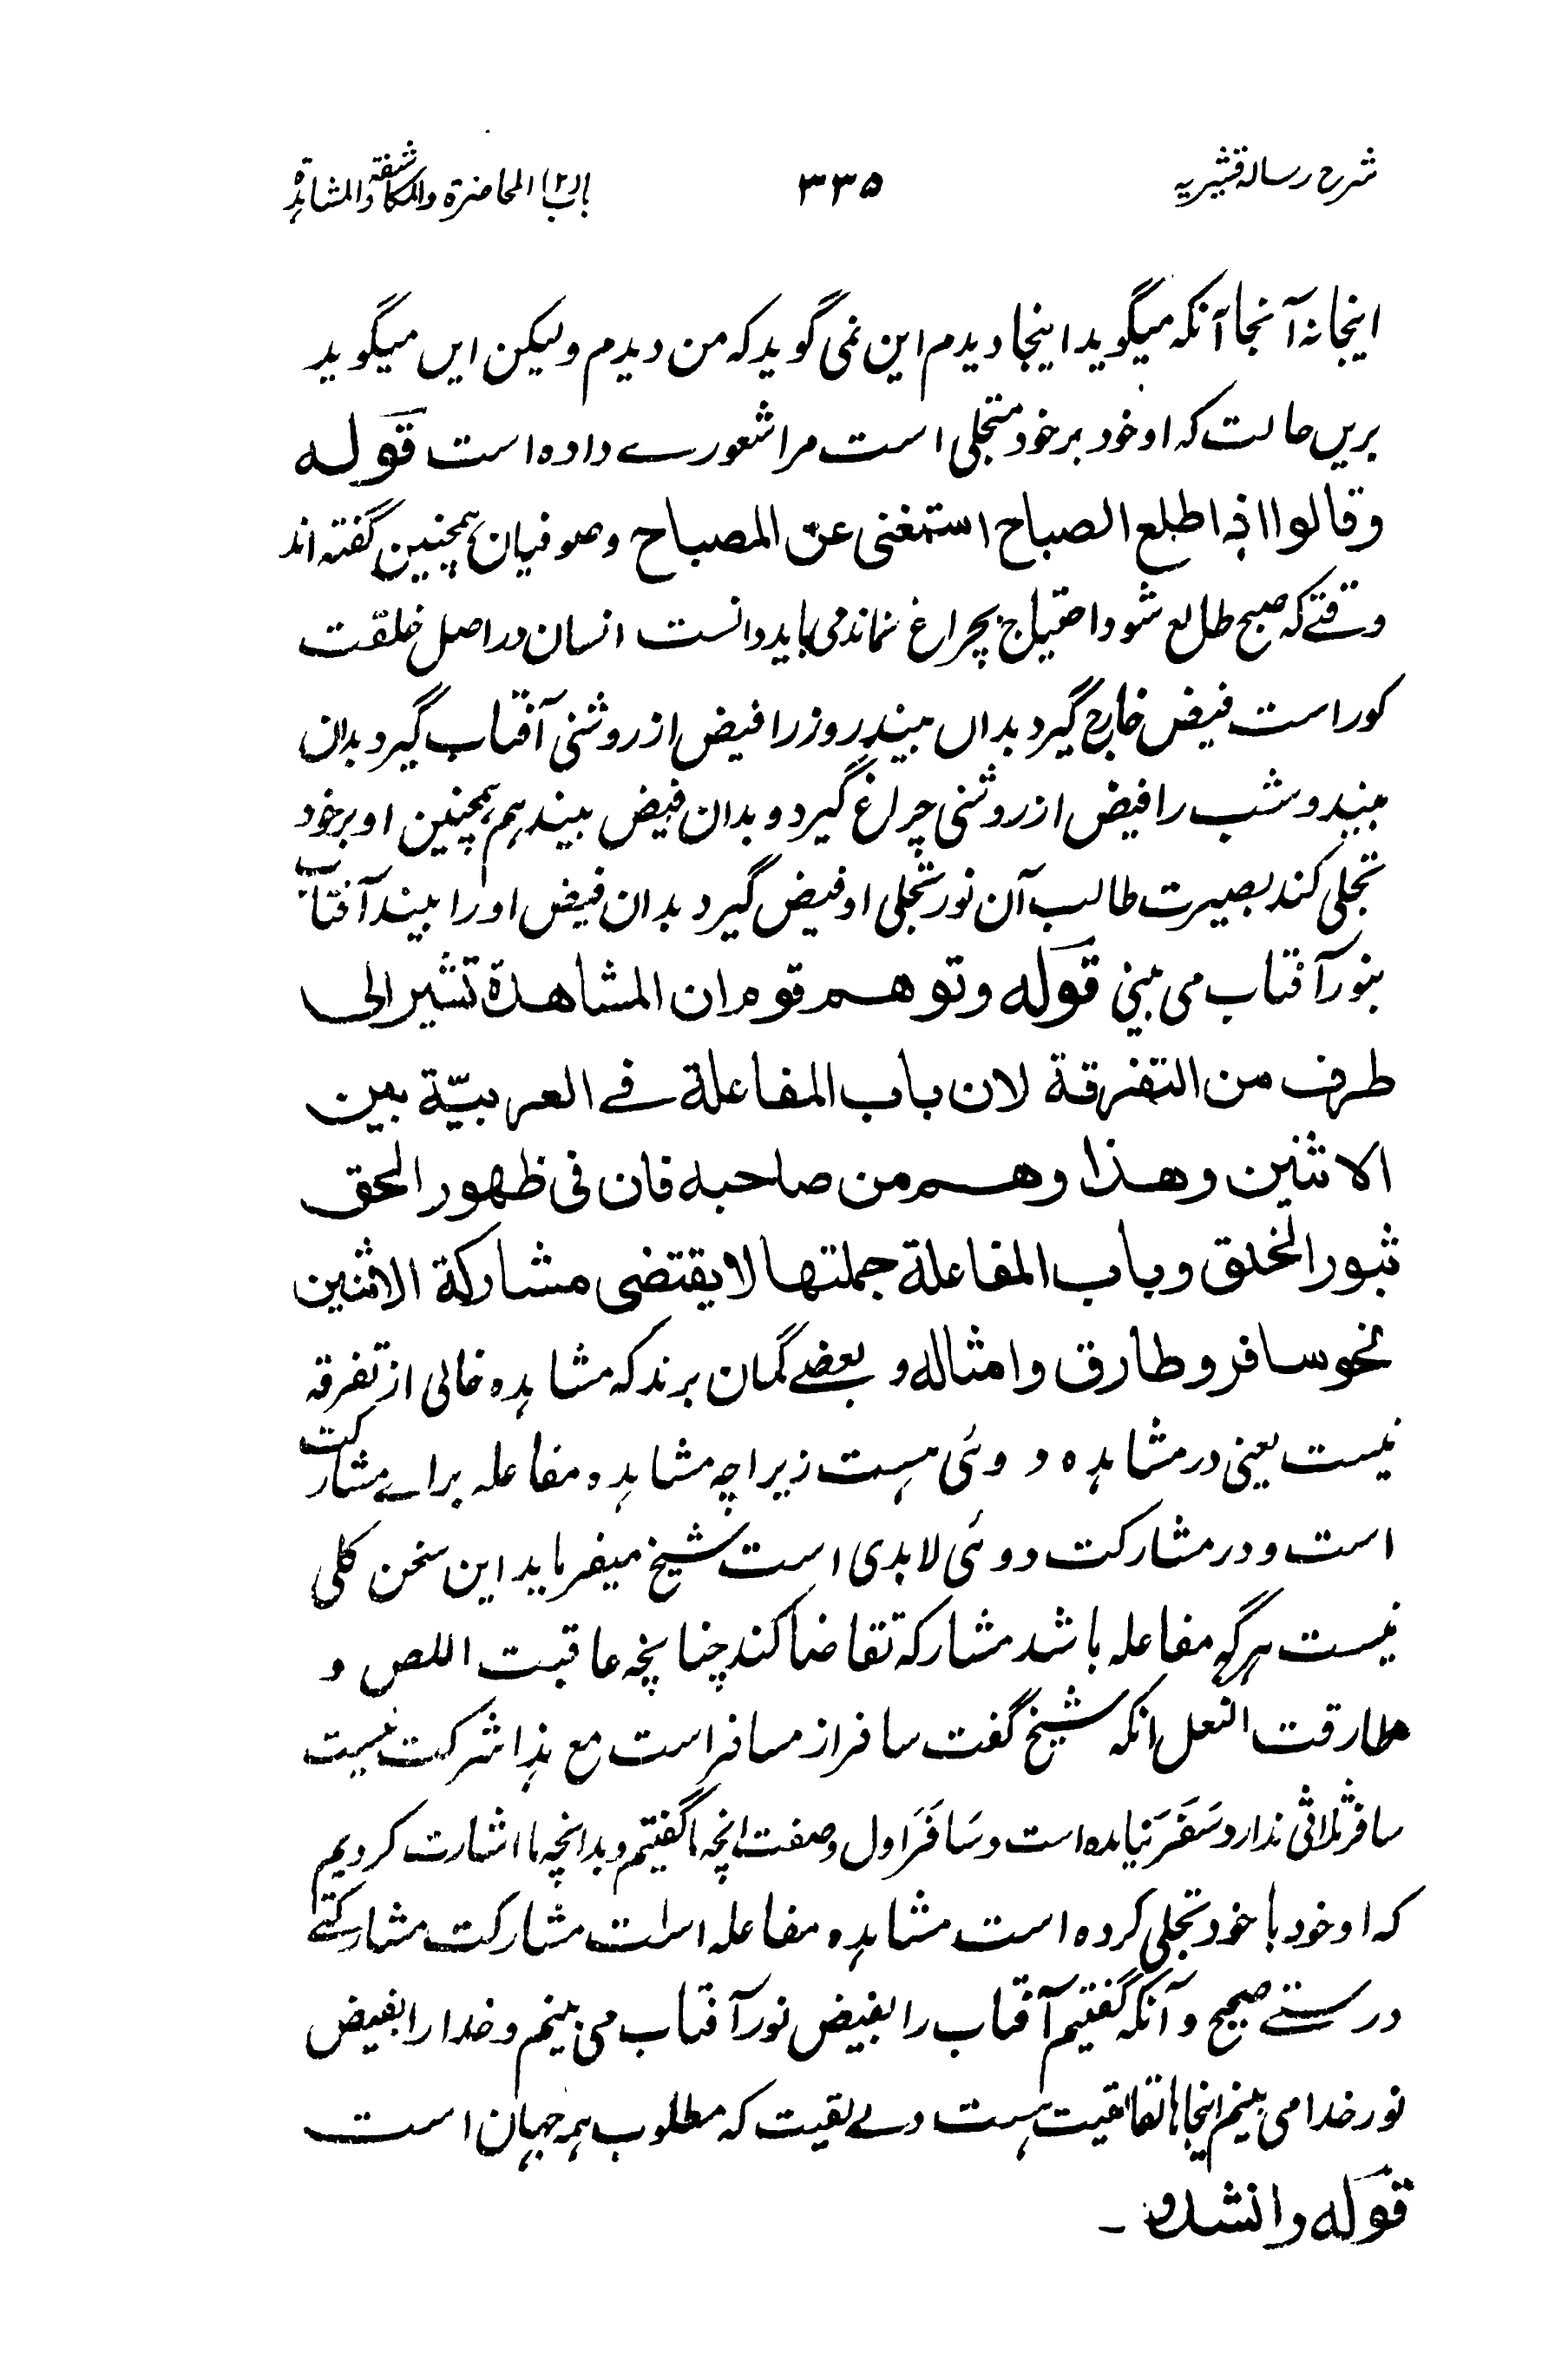 شرح رسالہ قشیریہ
۳۳۵
باب (۲) المحاضرة والمکاشفة والمشاہدہ
اینجا نہ آنجا آنکہ میگوید اینجا دیدم این نمی گوید کہ من دیدم ولیکن ایں میگوید
بریں حالت کہ او خود بر خود متجلی است مرا شعورے دادہ است قولہ
وقالوا اذا طلع الصباح استغنی عن المصباح وصوفیان ہمچنین گفتہ اند
وقتے کہ صبح طالع شود احتیاج بچراغ نماند می باید دانست انسان در اصل خلقت
کور است فیض خارج گیرد بداں بیند روز را فیض از روشنی آفتاب گیرد بدان
بیند و شب را فیض از روشنی چراغ گیرد و بدان فیض بیند ہم ہمچنین او بر خود
تجلی کند بصیرت طالب آن نور تجلی او فیض گیرد بدان فیض او را بیند آفتاب
بنور آفتاب می بینی قولہ وتوهم قوم ان المشاهدة تشیر الی
طرف من التفرقة لان باب المفاعلة فے العربیّة بین
الاثنین وهذا وهم من صاحبه فان فی ظهور الحق
ثبور الخلق وباب المفاعلة جملتها لا یقتضی مشارکة الاثنین
نحو سافر وطارق وامثاله و بعضے گمان برند کہ مشاہدہ خالی از تفرقہ
نیست یعنی در مشاہدہ دوئی ہست زیراچہ مشاہدہ مفاعلہ براے مشارکت
است و در مشارکت دوئی لابدی است شیخ میفرماید این سخن کلی
نیست ہر گہ مفاعلہ باشد مشارکة تقاضا کند چنانچہ عاقبت اللص و
طارقت النعل انکہ شیخ گفت سافر از مسافر است مع ہذا شرکت نیست
سافر ثلاثی ندارد سَفَرَ نیامدہ است و سَافَرَ اول وصفت انچہ ما گفتیم و بدانچہ ما اشارت کردیم
کہ او خود با خود تجلی کردہ است مشاہدہ مفاعلہ است مشارکت مشارکتے
درستے صحیح و آنکہ گفتیم آفتاب را بفیض نور آفتاب می بینم و خدا را بفیض
نور خدا می بینم اینجا ہست ولے بقیت کہ مطلوب ہمہ جہان است
قولہ وانشدوا ۔